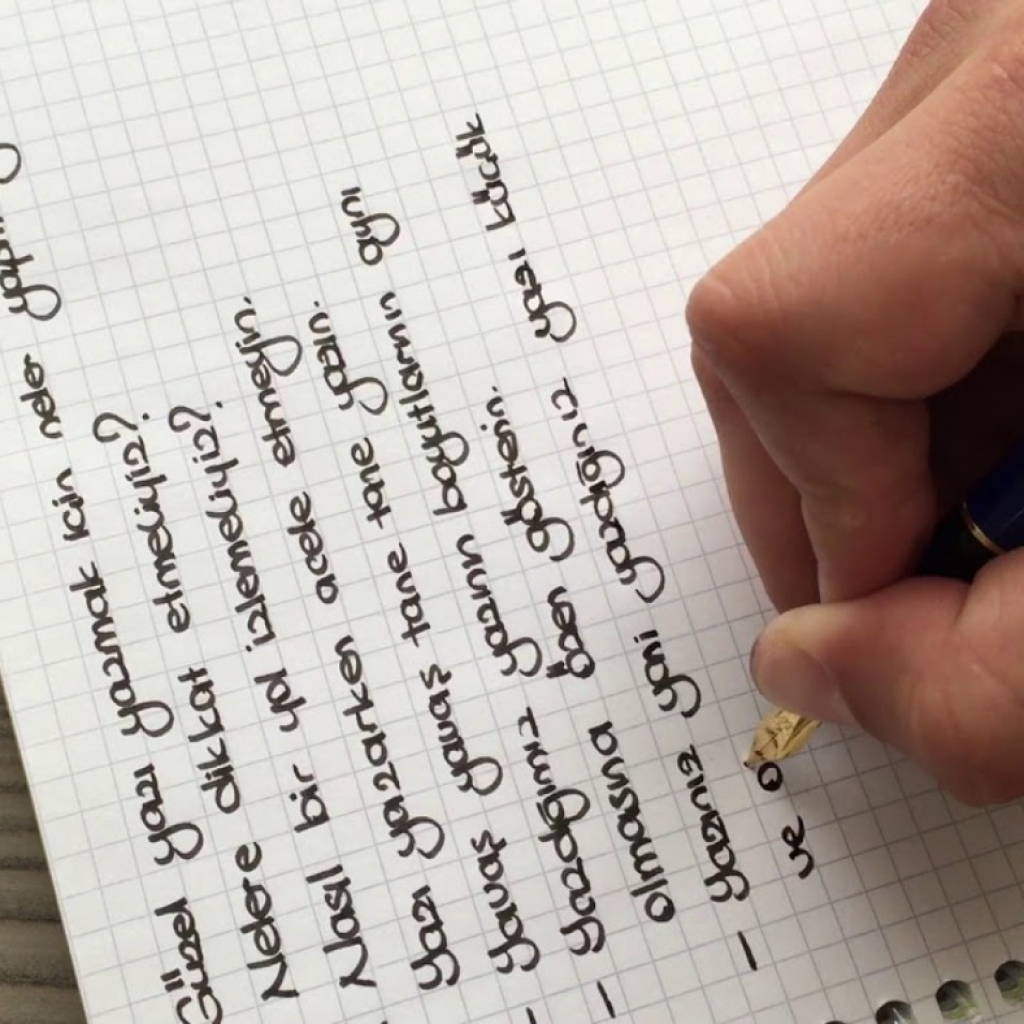 Güzel yazı yazmak için neler
Nelere dikkat etmeliyiz?
Nasıl bir yol izlemeliyiz?
Yazı yazarken acele etmeyin.
Yavaş yavaş tane tane yazın.
- Yazdığınız yazının boyutlarının aynı
- olmasına özen gösterin.
- Yazınız yani yazdığınız yazı küçük
ve o